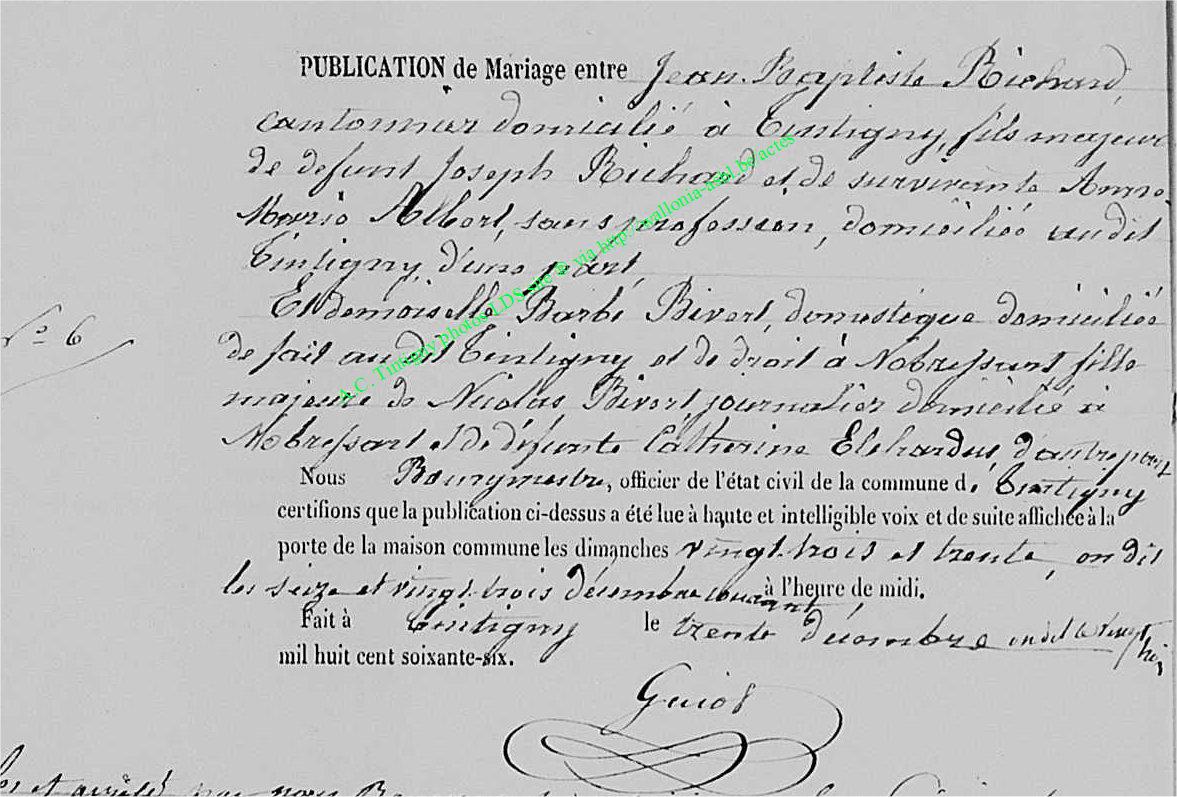 PUBLICATION de Mariage entre Jean-Baptiste Richard,
cantonnier domicilié à Tintigny, fils majeur
de defunt Joseph Richard et de survivante Anne-
Marie Albert, sans profession, domiciliée audit
Tintigny, d'une part,
Et demoiselle Barbe Bivert, domestique domiciliée
N° 6
de fait audit Tintigny et de droit à Nobressart fille
majeure de Nicolas Bivert, journalier domicilié à
Nobressart et de défunte Catherine Elchardus, d'autre part
Nous Bourgmestre, officier de l'état civil de la commune de Tintigny
certifions que la publication ci-dessus a été lue à haute et intelligible voix et de suite affichée à la
porte de la maison commune les dimanches vingt-trois et trente, on dit
les seize et vingt-trois décembre courant, à l'heure de midi.
Fait à Tintigny le trente décembre on dit le vingt trois
mil huit cent soixante-six.
Guiot
A.C. Tintigny photos LDS site © via http://wallonia-asbl.be/actes
et arrêté par nous